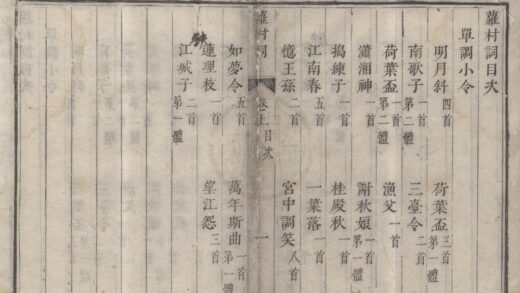 蘿村詞目次
單調小令
明月斜 四首 荷葉盃 三首 第一體
南歌子 一首 第二體 三臺令 二首
荷葉盃 一首 第二體 漁父 一首
瀟湘神 一首 謝秋娘 一首 第一體
搗練子 一首 桂殿秋 一首
江南春 五首 一葉落 一首
憶王孫 二首 宮中調笑 八首
蘿村詞 卷上目次 一
如夢令 五首 萬年斯曲 一首 第一體
連理枝 一首 望江怨 三首
江城子 二首 第一體